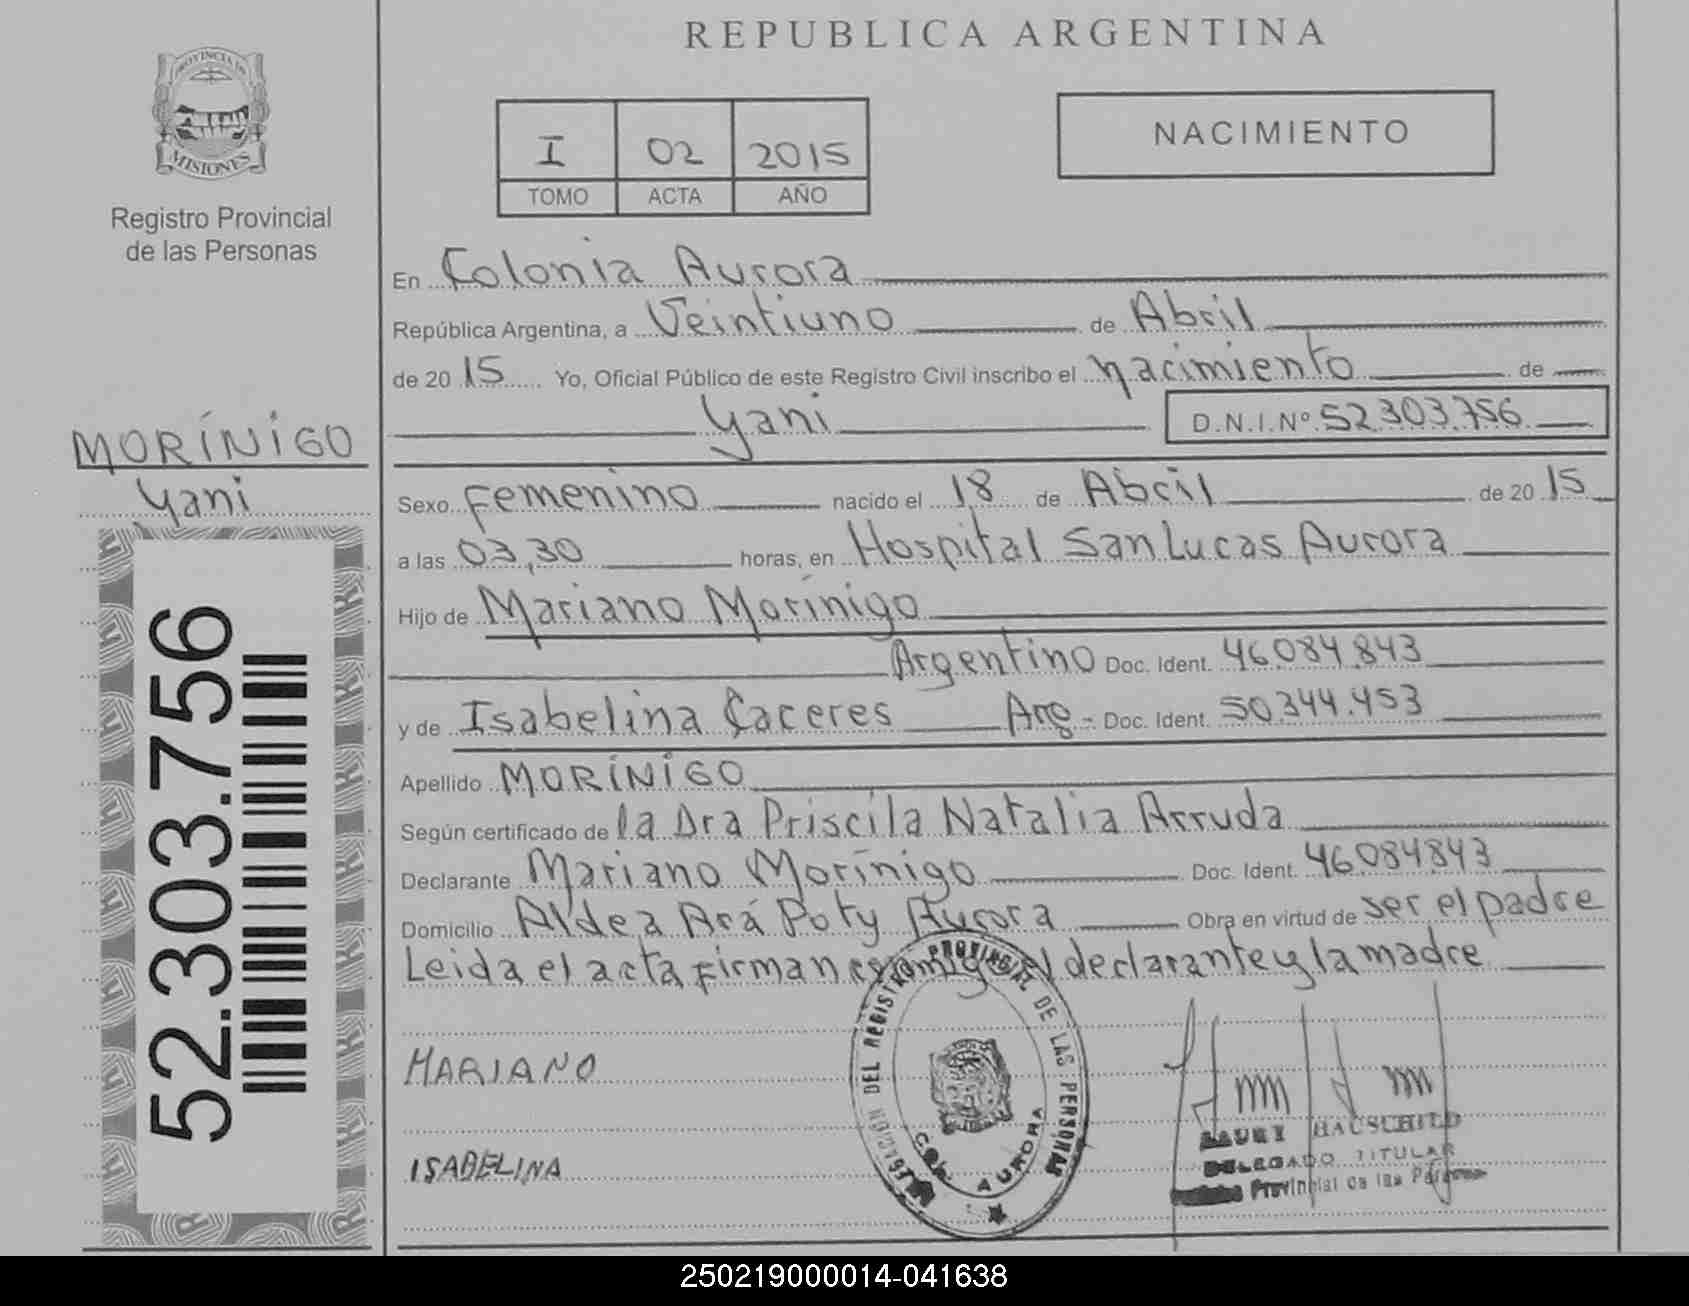 REPUBLICA ARGENTINA
PROVINCIA DE
MISIONES
Registro Provincial
de las Personas
I 02 2015
TOMO ACTA AÑO
NACIMIENTO
En Colonia Aurora
República Argentina, a Veintiuno de Abril
de 2015 Yo, Oficial Público de este Registro Civil inscribo el nacimiento de
Yani D.N.I.Nº 52.303.756
MORÍNIGO
Yani
52.303.756
Sexo Femenino nacido el 18 de Abril de 2015
a las 03,30 horas, en Hospital San Lucas Aurora
Hijo de Mariano Morínigo
Argentino Doc. Ident. 46.084.843
y de Isabelina Caceres Arg - Doc. Ident. 50.344.453
Apellido MORÍNIGO
Según certificado de la Dra Priscila Natalia Arruda
Declarante Mariano Morínigo Doc. Ident. 46.084.843
Domicilio Aldea Ará Poty Aurora Obra en virtud de ser el padre
Leida el acta firman conmigo el declarante y la madre
MARIANO
ISABELINA
DEL REGISTRO PROVINCIAL DE LAS PERSONAS
COL. AURORA
HAUSCHILD
DELEGADO TITULAR
Provincial de las Personas
250219000014-041638